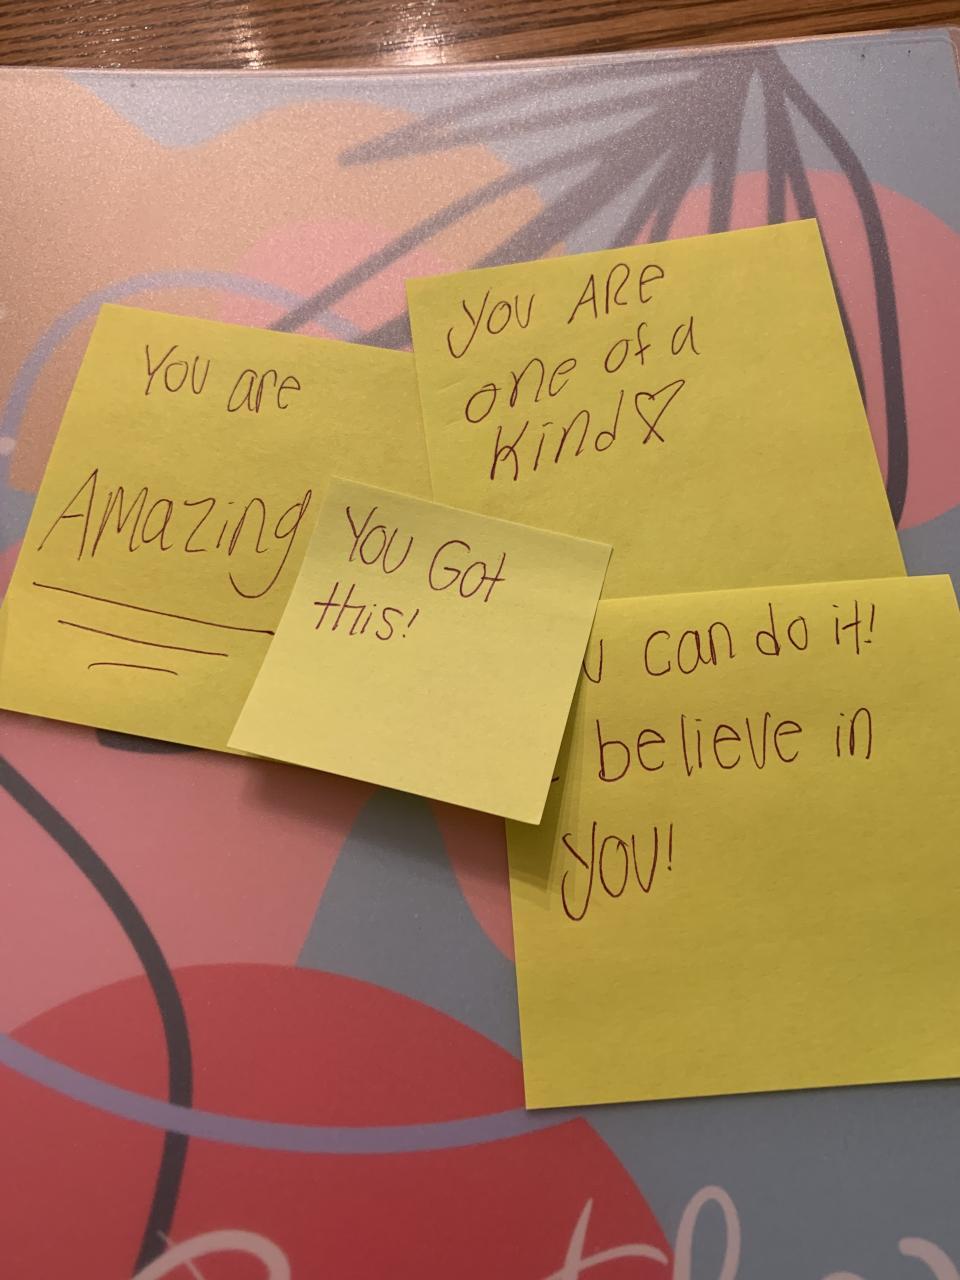 You are
Amazing
You ARe
one of a
Kind♡
You Got
this!
can do it!
believe in
You!